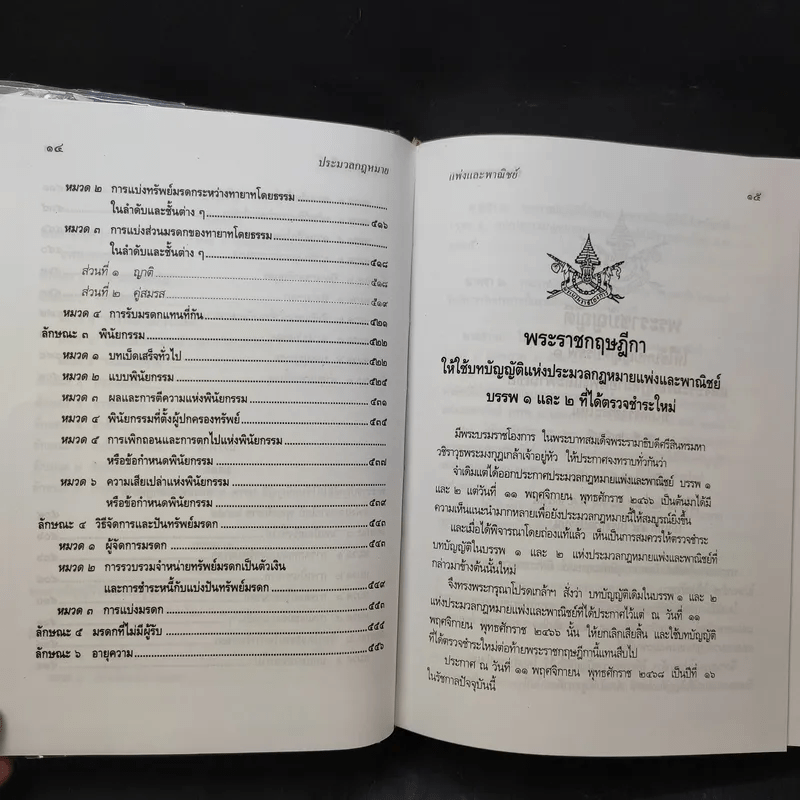 ๑๔
ประมวลกฎหมาย
หมวด ๒ การแบ่งทรัพย์มรดกระหว่างทายาทโดยธรรม
ในลำดับและชั้นต่าง ๆ ๕๑๖
หมวด ๓ การแบ่งส่วนมรดกของทายาทโดยธรรม
ในลำดับและชั้นต่าง ๆ ๕๑๘
ส่วนที่ ๑ ญาติ ๕๑๘
ส่วนที่ ๒ คู่สมรส ๕๑๙
หมวด ๔ การรับมรดกแทนที่กัน ๕๒๑
ลักษณะ ๓ พินัยกรรม ๕๒๒
หมวด ๑ บทเบ็ดเสร็จทั่วไป ๕๒๒
หมวด ๒ แบบพินัยกรรม ๕๒๕
หมวด ๓ ผลและการตีความแห่งพินัยกรรม ๕๓๑
หมวด ๔ พินัยกรรมที่ตั้งผู้ปกครองทรัพย์ ๕๓๕
หมวด ๕ การเพิกถอนและการตกไปแห่งพินัยกรรม
หรือข้อกำหนดพินัยกรรม ๕๓๗
หมวด ๖ ความเสียเปล่าแห่งพินัยกรรม
หรือข้อกำหนดพินัยกรรม ๕๓๙
ลักษณะ ๔ วิธีจัดการและปันทรัพย์มรดก ๕๔๓
หมวด ๑ ผู้จัดการมรดก ๕๔๓
หมวด ๒ การรวบรวมจำหน่ายทรัพย์มรดกเป็นตัวเงิน
และการชำระหนี้กับแบ่งปันทรัพย์มรดก ๕๔๙
หมวด ๓ การแบ่งมรดก ๕๕๓
ลักษณะ ๕ มรดกที่ไม่มีผู้รับ ๕๕๕
ลักษณะ ๖ อายุความ ๕๕๖
แพ่งและพาณิชย์
๑๕
พระราชกฤษฎีกา
ให้ใช้บทบัญญัติแห่งประมวลกฎหมายแพ่งและพาณิชย์
บรรพ ๑ และ ๒ ที่ได้ตรวจชำระใหม่
มีพระบรมราชโองการ ในพระบาทสมเด็จพระรามาธิบดีศรีสินทรมหา
วชิราวุธพระมงกุฎเกล้าเจ้าอยู่หัว ให้ประกาศจงทราบทั่วกันว่า
จำเดิมแต่ได้ออกประกาศประมวลกฎหมายแพ่งและพาณิชย์ บรรพ ๑
และ ๒ แต่วันที่ ๑๑ พฤศจิกายน พุทธศักราช ๒๔๖๖ เป็นต้นมาได้มี
ความเห็นแนะนำมากหลายเพื่อยังประมวลกฎหมายนี้ให้สมบูรณ์ยิ่งขึ้น
และเมื่อได้พิจารณาโดยถ่องแท้แล้ว เห็นเป็นการสมควรให้ตรวจชำระ
บทบัญญัติในบรรพ ๑ และ ๒ แห่งประมวลกฎหมายแพ่งและพาณิชย์ที่
กล่าวมาข้างต้นนั้นใหม่
จึงทรงพระกรุณาโปรดเกล้าฯ สั่งว่า บทบัญญัติเดิมในบรรพ ๑ และ ๒
แห่งประมวลกฎหมายแพ่งและพาณิชย์ที่ได้ประกาศไว้แต่ ณ วันที่ ๑๑
พฤศจิกายน พุทธศักราช ๒๔๖๖ นั้น ให้ยกเลิกเสียสิ้น และใช้บทบัญญัติ
ที่ได้ตรวจชำระใหม่ต่อท้ายพระราชกฤษฎีกานี้แทนสืบไป
ประกาศ ณ วันที่ ๑๑ พฤศจิกายน พุทธศักราช ๒๔๖๘ เป็นปีที่ ๑๖
ในรัชกาลปัจจุบันนี้